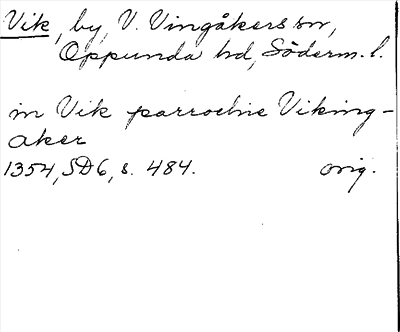 Vik, by, V. Vingåkers sn,
Oppunda hd, Söderm. l.
in Vik parrochie Viking-
aker
1354, SD 6, s. 484. orig.